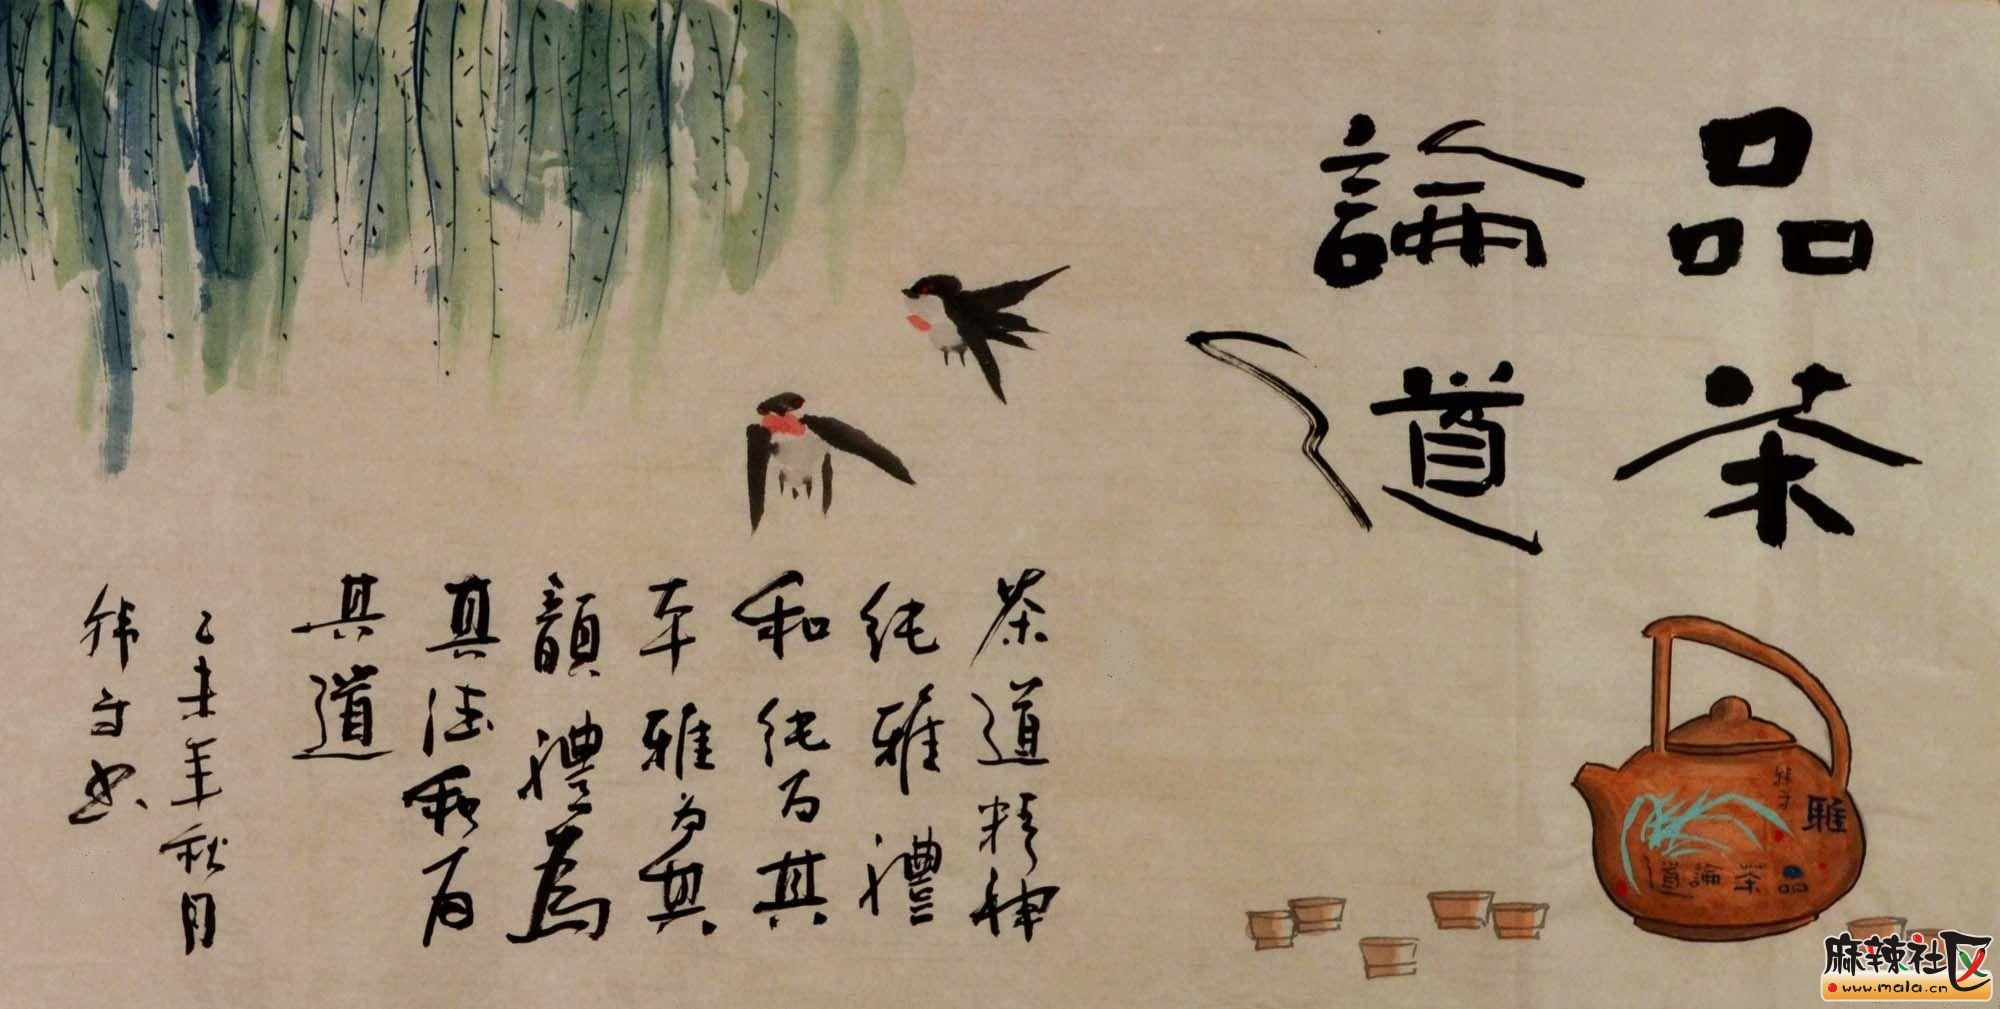 品茶
論道
茶道精神
纯雅禮
和纯为其
本雅为其
韻禮為
其德和为
其道
乙未年秋月
雅
品茶論道
麻辣社区
www.mala.cn